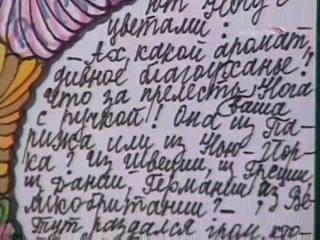 ют Ногу
цветами:
– Ах, какой аромат,
дивное благоуханье!
Что за прелесть Нога
Ваша
с ручкой! Она из Па-
рижа или из Нью-Йор-
ка? Из Швеции, из Греции,
из Дании, Германии, из Ве-
ликобритании? –
Тут раздался гром, кто-